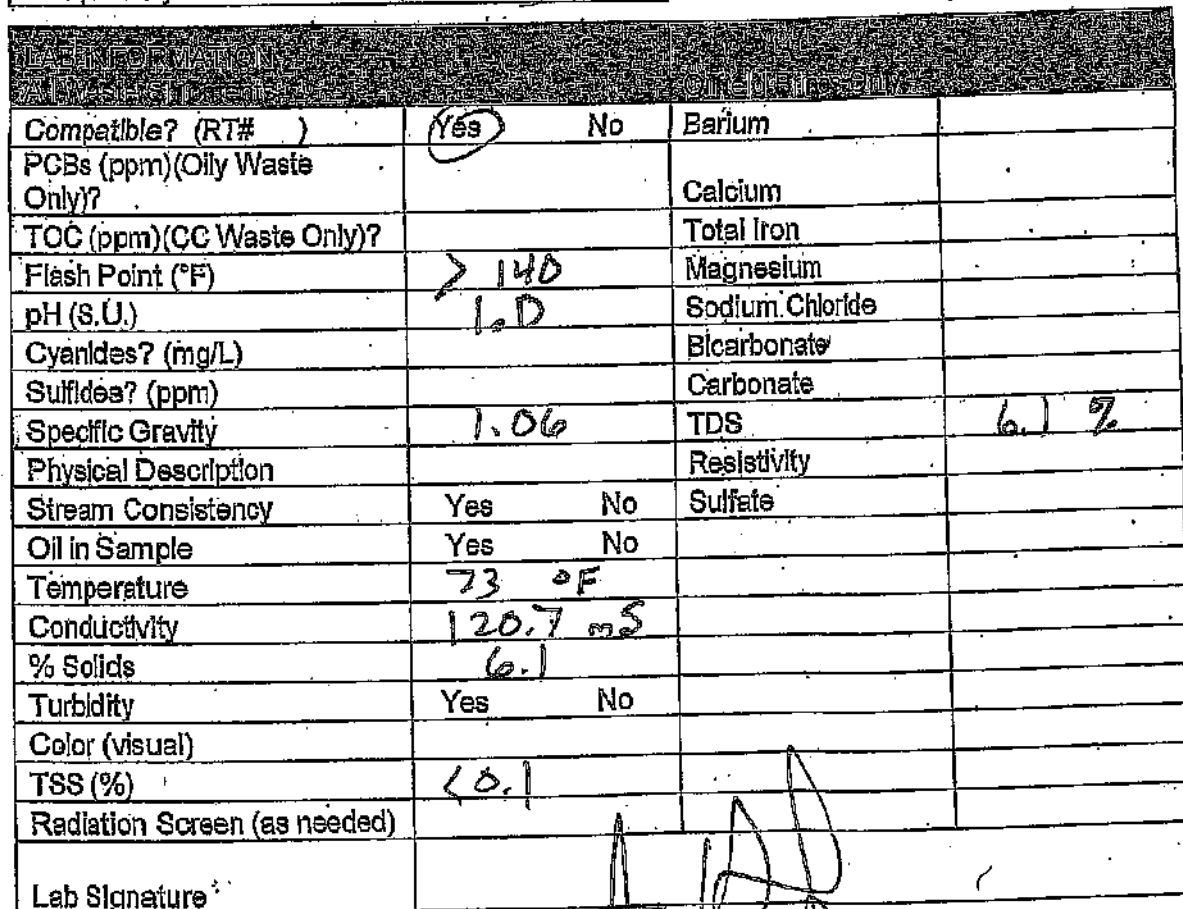 LAB INFORMATION
All Waste Shipments
Compatible? (RT# ) Yes No Barium
PCBs (ppm)(Oily Waste
Only)? Calcium
TOC (ppm)(CC Waste Only)? Total Iron
Flash Point (°F) > 140 Magnesium
pH (S.U.) 1.0 Sodium Chloride
Cyanides? (mg/L) Bicarbonate
Sulfides? (ppm) Carbonate
Specific Gravity 1.06 TDS 6.1 %
Physical Description Resistivity
Stream Consistency Yes No Sulfate
Oil in Sample Yes No
Temperature 73 °F
Conductivity 120.7 mS
% Solids 6.1
Turbidity Yes No
Color (visual)
TSS (%) <0.1
Radiation Screen (as needed)
Lab Signature